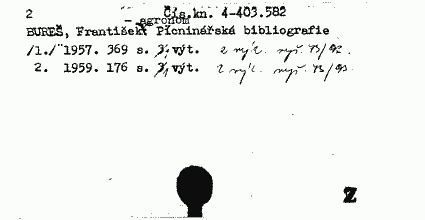 2 Čís.kn. 4-403.582
- agronom
BUREŠ, František Pícninářská bibliografie
/1./ 1957. 369 s. 3, výt. 2 výt. vyř. 93/92.
2. 1959. 176 s. 3, výt. 2 výt. vyř. 93/93
Z